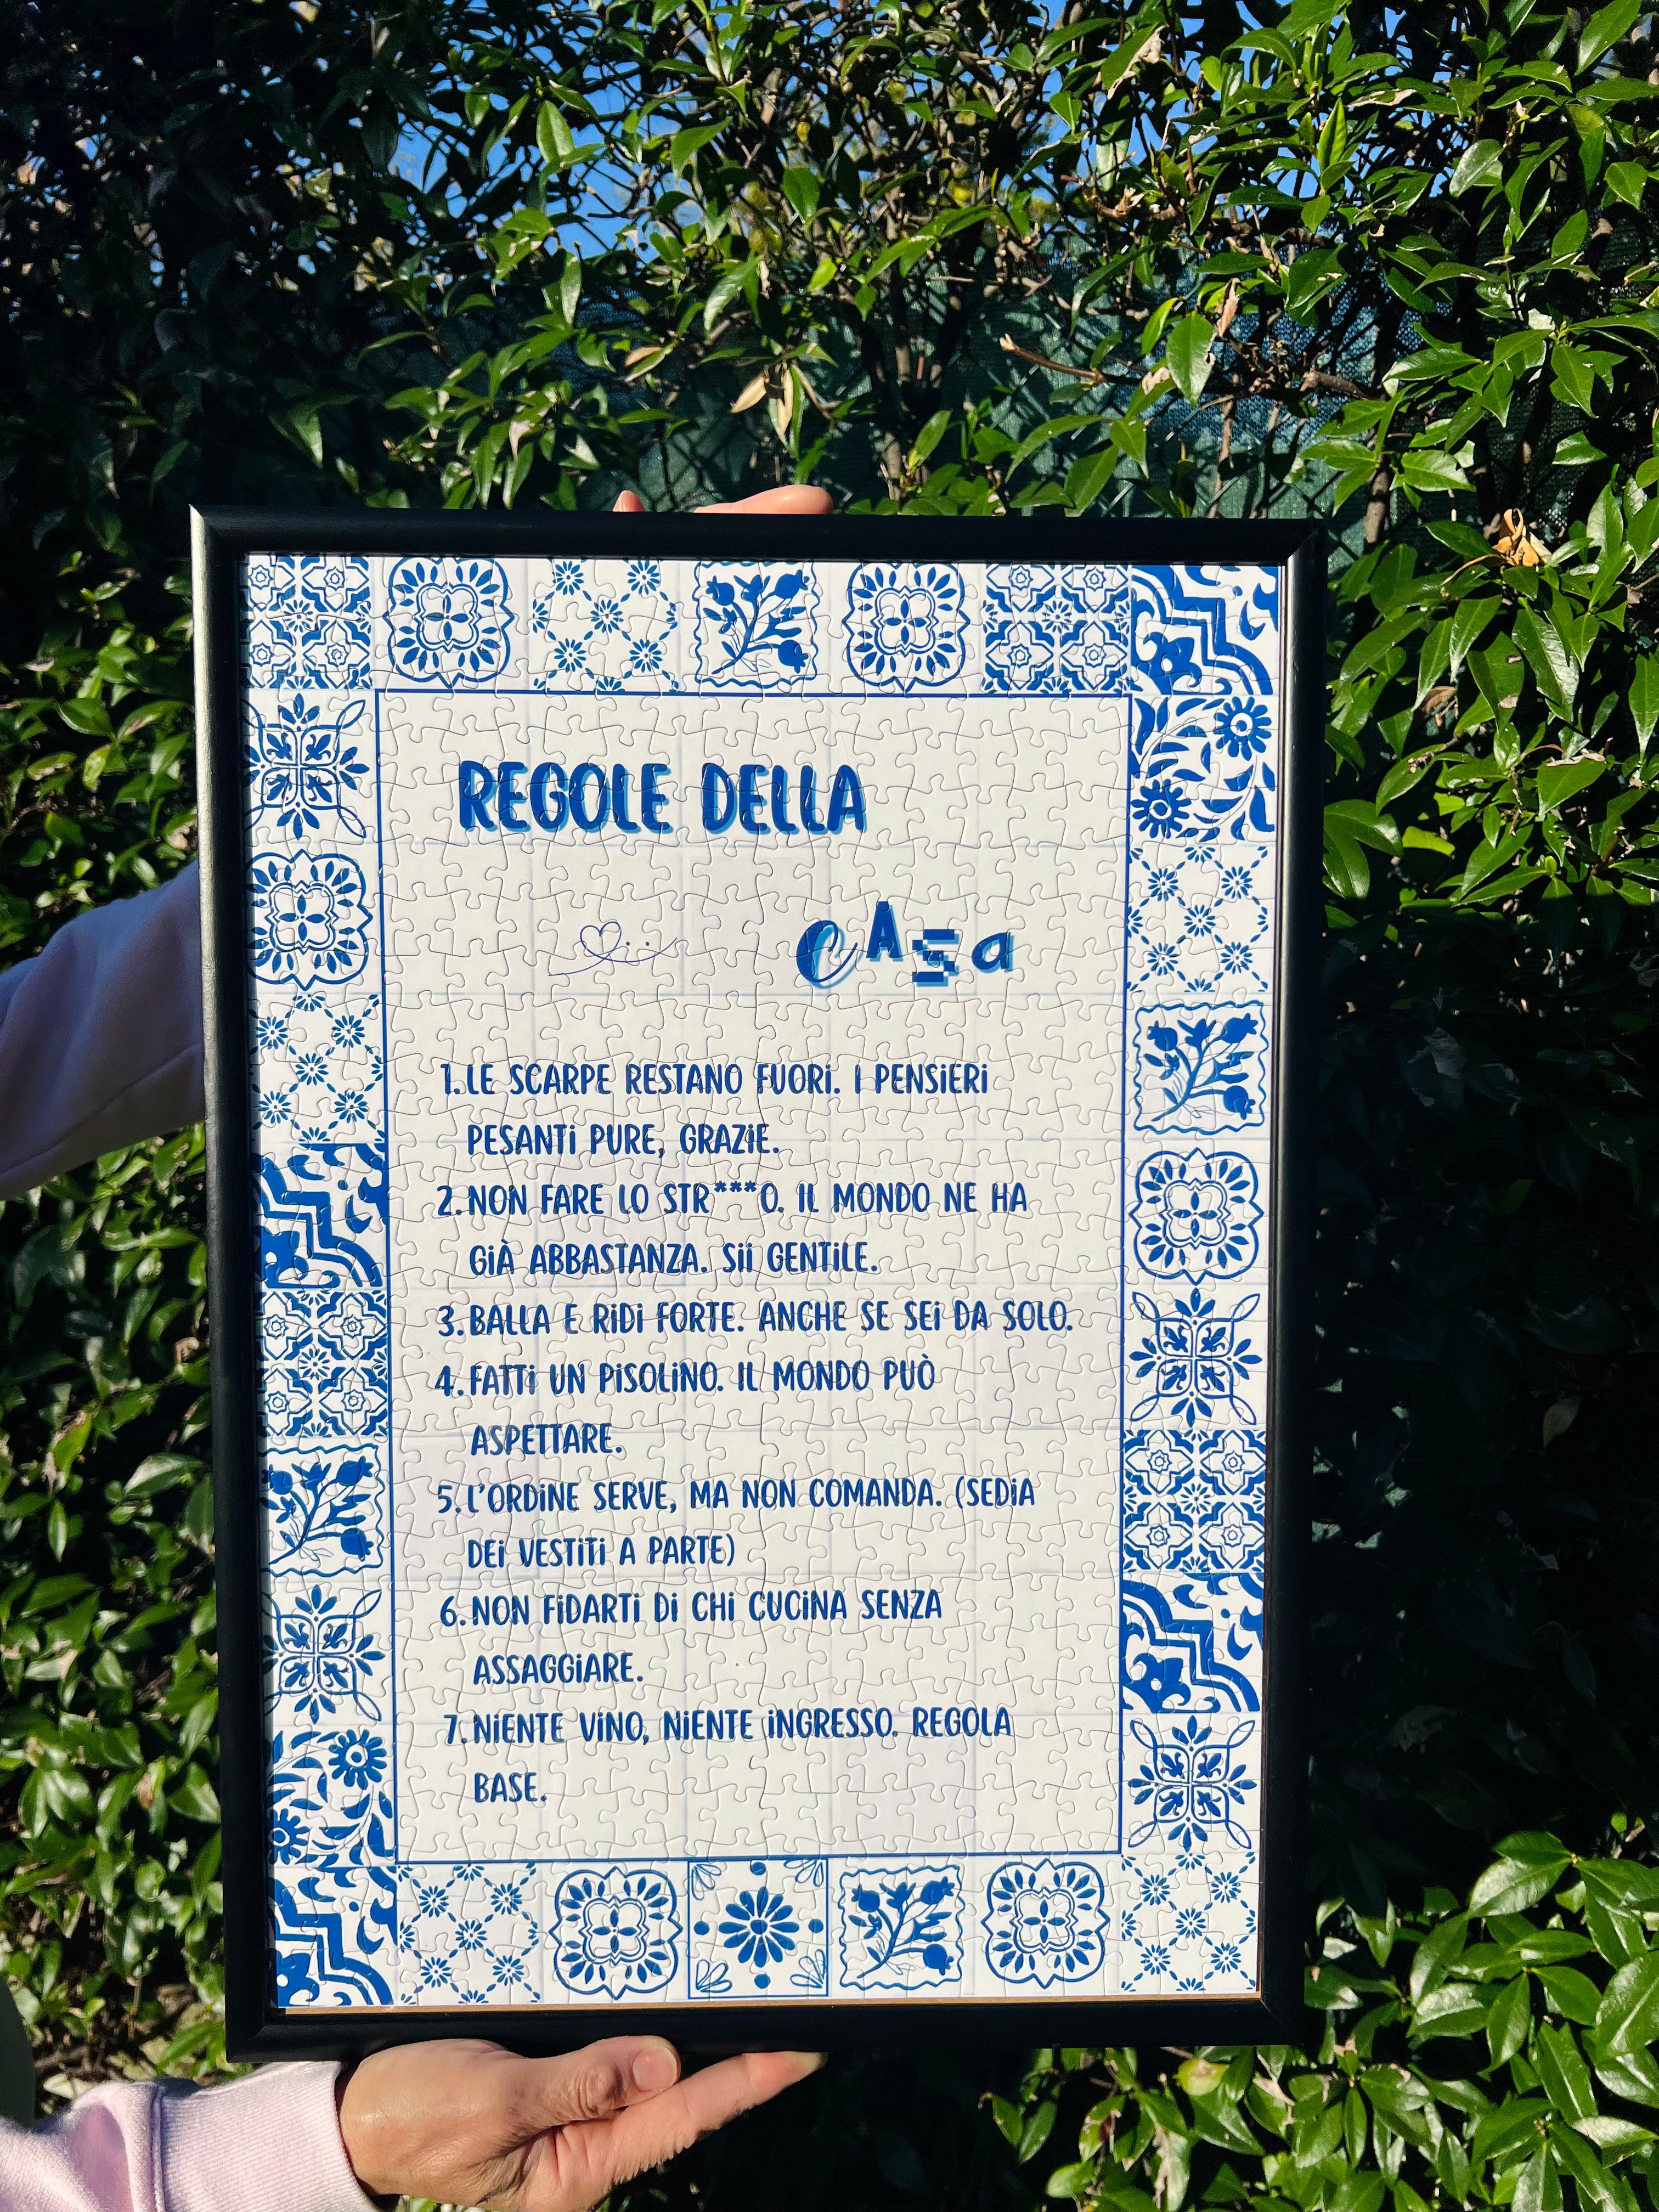 REGOLE DELLA
CASa
1. LE SCARPE RESTANO FUORi. I PENSiERi
PESANTi PURE, GRAZiE.
2. NON FARE LO STR***O. IL MONDO NE HA
GiÀ ABBASTANZA. Sii GENTiLE.
3. BALLA E RiDi FORTE. ANCHE SE SEi DA SOLO.
4. FATTi UN PiSOLiNO. IL MONDO PUÒ
ASPETTARE.
5. L'ORDiNE SERVE, MA NON COMANDA. (SEDiA
DEi VESTiTi A PARTE)
6. NON FiDARTi Di CHi CUCiNA SENZA
ASSAGGiARE.
7. NiENTE ViNO, NiENTE iNGRESSO. REGOLA
BASE.